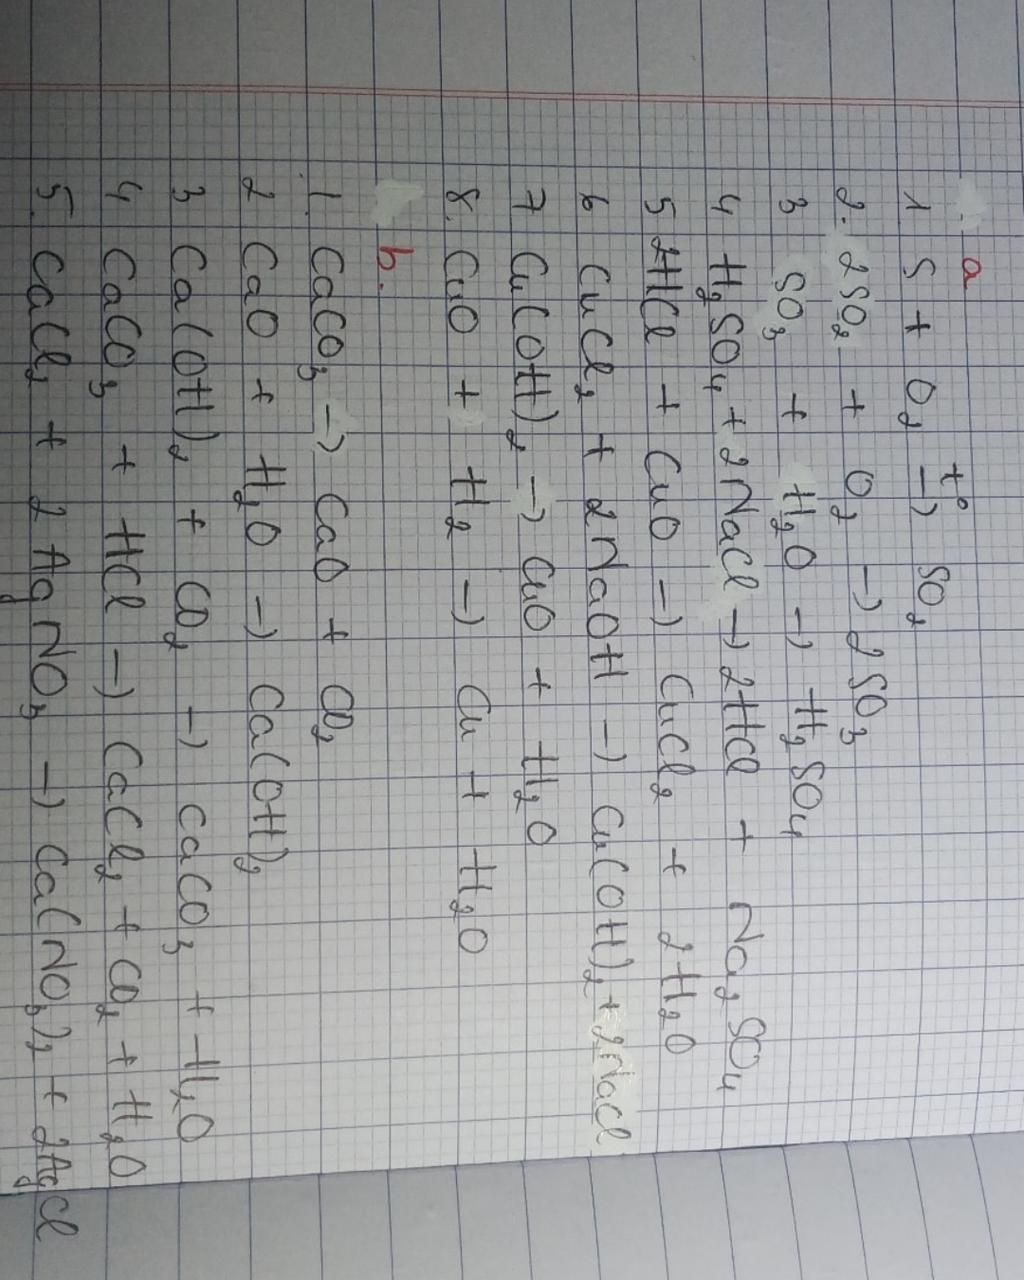 a
1 S + O₂ t° → SO₂
2. 2SO₂ + O₂ → 2SO₃
3 SO₃ + H₂O → H₂SO₄
4 H₂SO₄ + 2NaCl → 2HCl + Na₂SO₄
5 2HCl + CuO → CuCl₂ + 2H₂O
6 CuCl₂ + 2NaOH → Cu(OH)₂ + 2NaCl
7 Cu(OH)₂ → CuO + H₂O
8. CuO + H₂ → Cu + H₂O
b.
1. CaCO₃ → CaO + CO₂
2 CaO + H₂O → Ca(OH)₂
3 Ca(OH)₂ + CO₂ → CaCO₃ + H₂O
4 CaCO₃ + HCl → CaCl₂ + CO₂ + H₂O
5. CaCl₂ + 2AgNO₃ → Ca(NO₃)₂ + 2AgCl